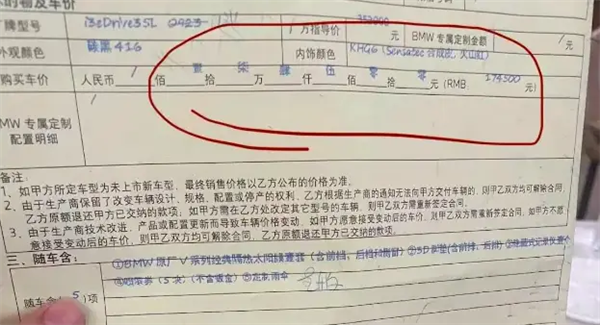 的物及车价
牌型号 i3eDrive35L 2023 厂方指导价 353000 元 BMW 专属定制金额 /
外观颜色 碳黑416 内饰颜色 KHG6 (Sensatec合成皮,火山红)
购买车价 人民币/佰壹拾柒万肆仟伍佰零拾零元 (RMB 174500 元)
MW 专属定制
配置明细 /
备注:
1、如甲方所定车型为未上市新车型,最终销售价格以乙方公布的价格为准。
2、由于生产商保留了改变车辆设计、规格、配置或停产的权利,乙方根据生产商的通知无法向甲方交付车辆的,则甲乙双方均可解除合同,
乙方原额退还甲方已交纳的款项。如甲方需在乙方处改定其它型号的车辆,则甲乙双方需重新签定合同。
3、由于生产商技术改进、产品或配置更新而导致车辆价格变动,如甲方愿意接受变动后的车价,则甲乙双方需重新签定合同,如甲方不愿
意接受变动后的车价,则甲乙双方均可解除合同,乙方原额退还甲方已交纳的款项。
三、随车含:
随车含(5)项 ①BMW原厂V系列经典隔热太阳膜套装(含前档,后档和侧窗)②5D脚垫(含前排,后排)③隐藏式记录仪
④喷漆券(5次)(不含钣金)⑤定制雨伞